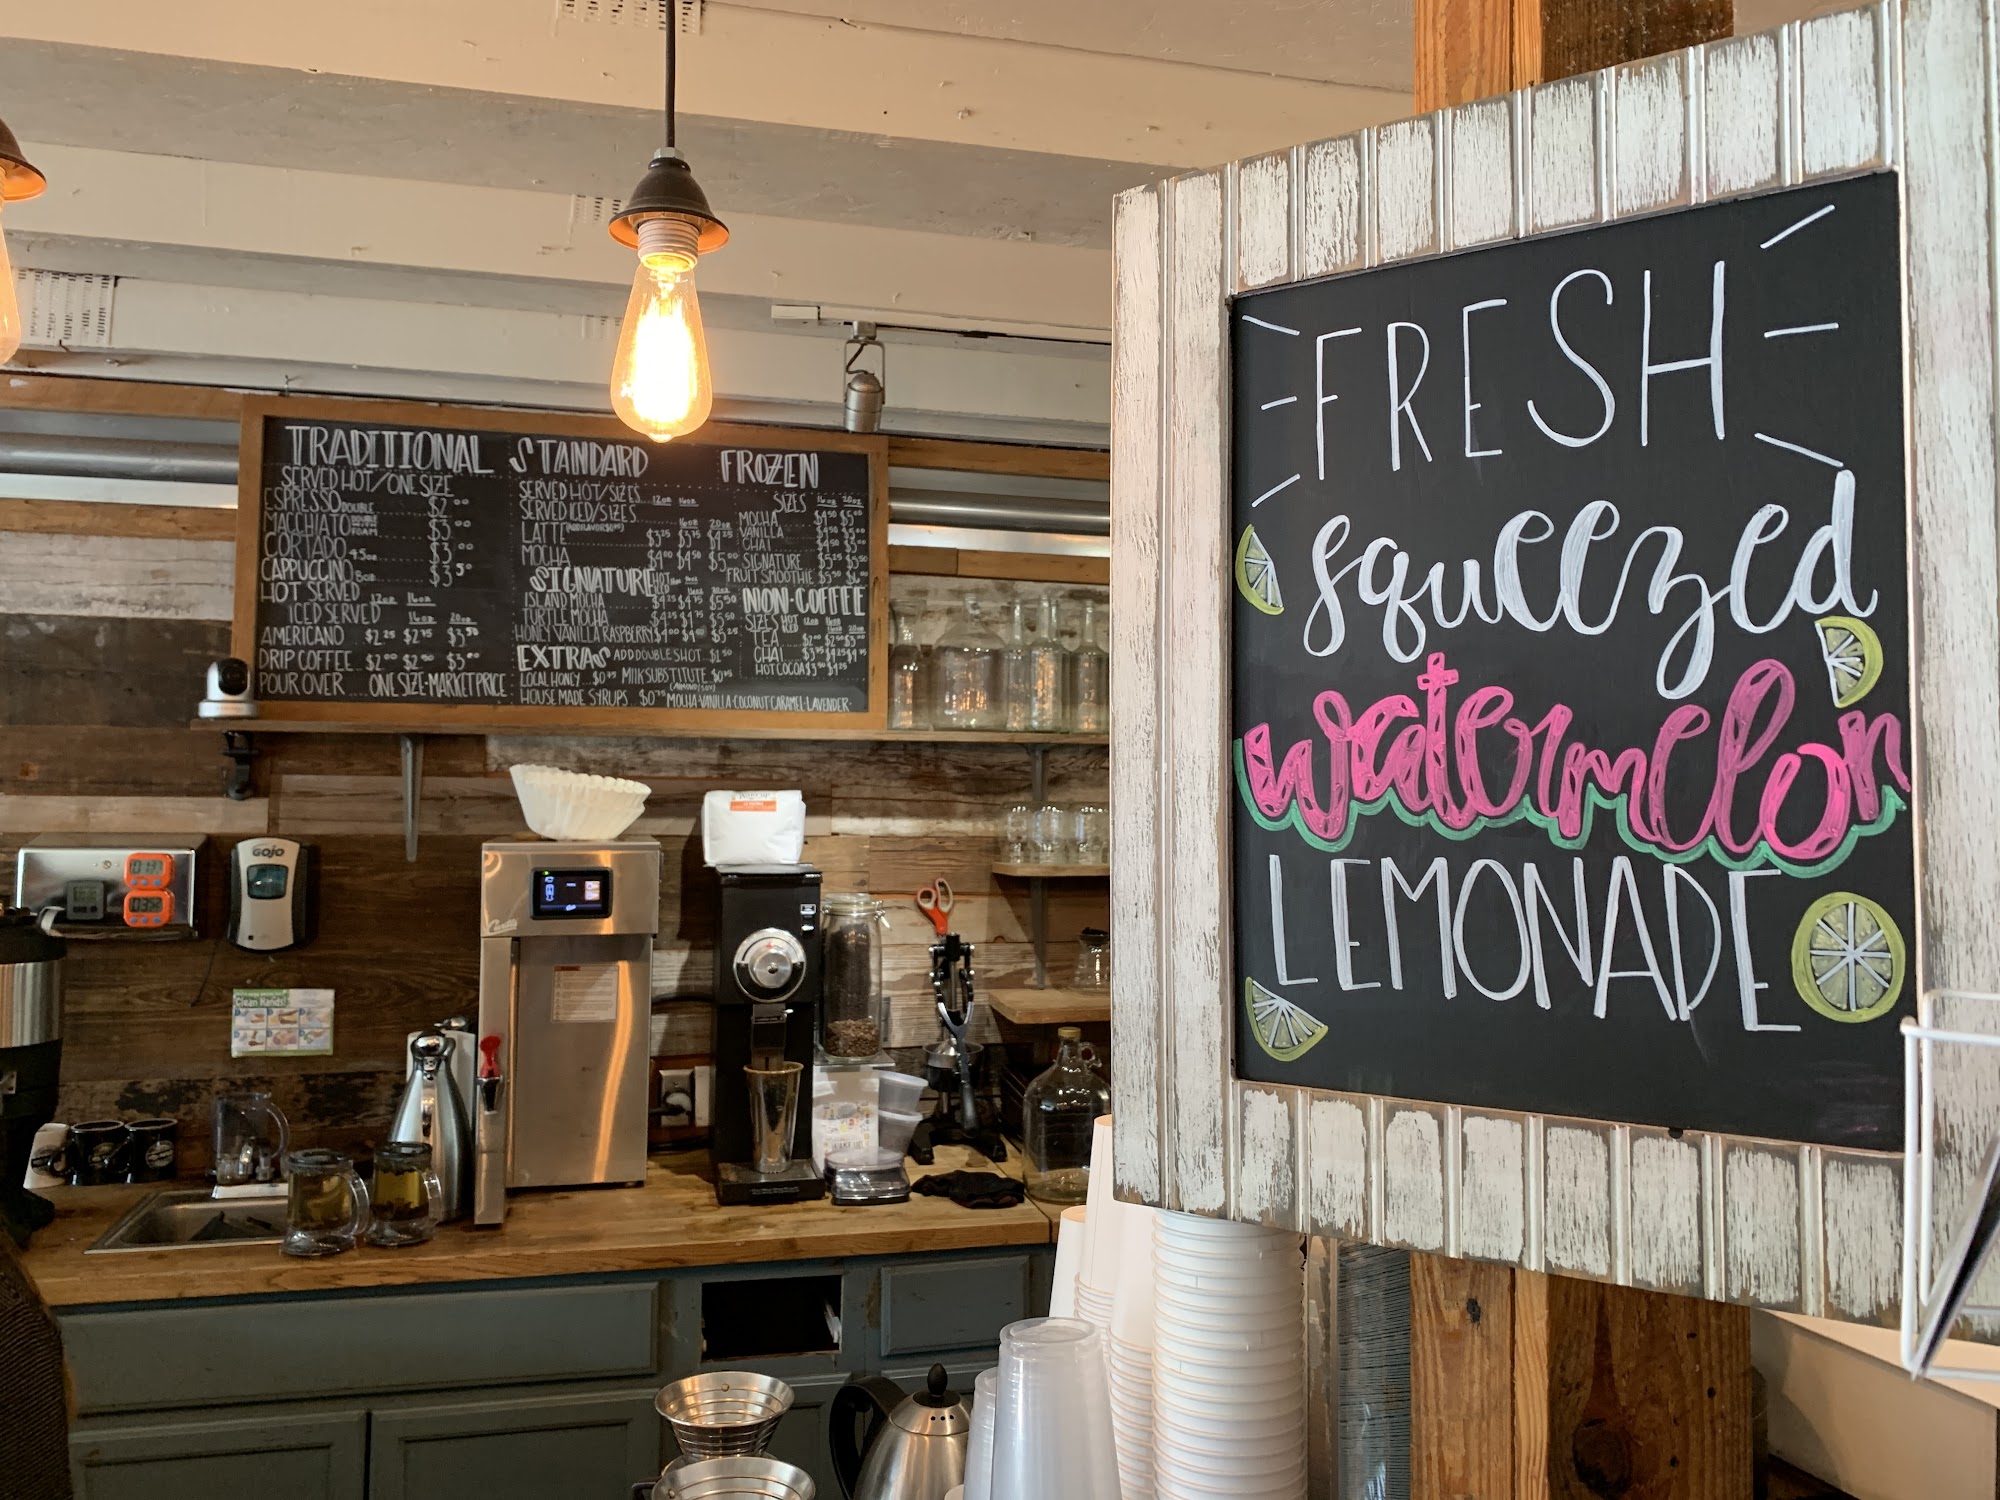 TRADITIONAL
SERVED HOT/ONE SIZE
ESPRESSO DOUBLE $2.00
MACCHIATO DOUBLE FOAM $3.00
CORTADO 4.5oz $3.00
CAPPUCCINO 8oz $3.50
HOT SERVED 12oz 16oz
ICED SERVED 16oz 20oz
AMERICANO $2.25 $2.75 $3.50
DRIP COFFEE $2.00 $2.50 $3.00
POUR OVER ONE SIZE-MARKET PRICE
STANDARD
SERVED HOT/SIZES 12oz 16oz
SERVED ICED/SIZES 16oz 20oz
LATTE (ADD FLAVOR $0.75) $3.25 $3.75 $4.25
MOCHA $4.00 $4.50 $5.00
SIGNATURE HOT 12oz 16oz
ICED 16oz 20oz
ISLAND MOCHA $4.25 $4.75 $5.50
TURTLE MOCHA $4.25 $4.75 $5.50
HONEY VANILLA RASPBERRY $4.00 $4.50 $5.25
EXTRAS ADD DOUBLE SHOT $1.50
LOCAL HONEY $0.75 MILK SUBSTITUTE $0.75
(ALMOND/SOY)
HOUSE MADE SYRUPS $0.75 MOCHA-VANILLA-COCONUT CARAMEL-LAVENDER
FROZEN
SIZES 16oz 20oz
MOCHA $4.50 $5.00
VANILLA $4.50 $5.00
CHAI $4.50 $5.00
SIGNATURE $5.25 $5.50
FRUIT SMOOTHIE $5.50 $6.00
NON-COFFEE
SIZES HOT 12oz 16oz
ICED 16oz 20oz
TEA $2.00 $2.50 $3.00
CHAI $3.75 $4.25 $4.75
HOT COCOA $3.50 $4.25
FRESH
squeezed
watermelon
LEMONADE
GOJO
Clean Hands!
Curtis